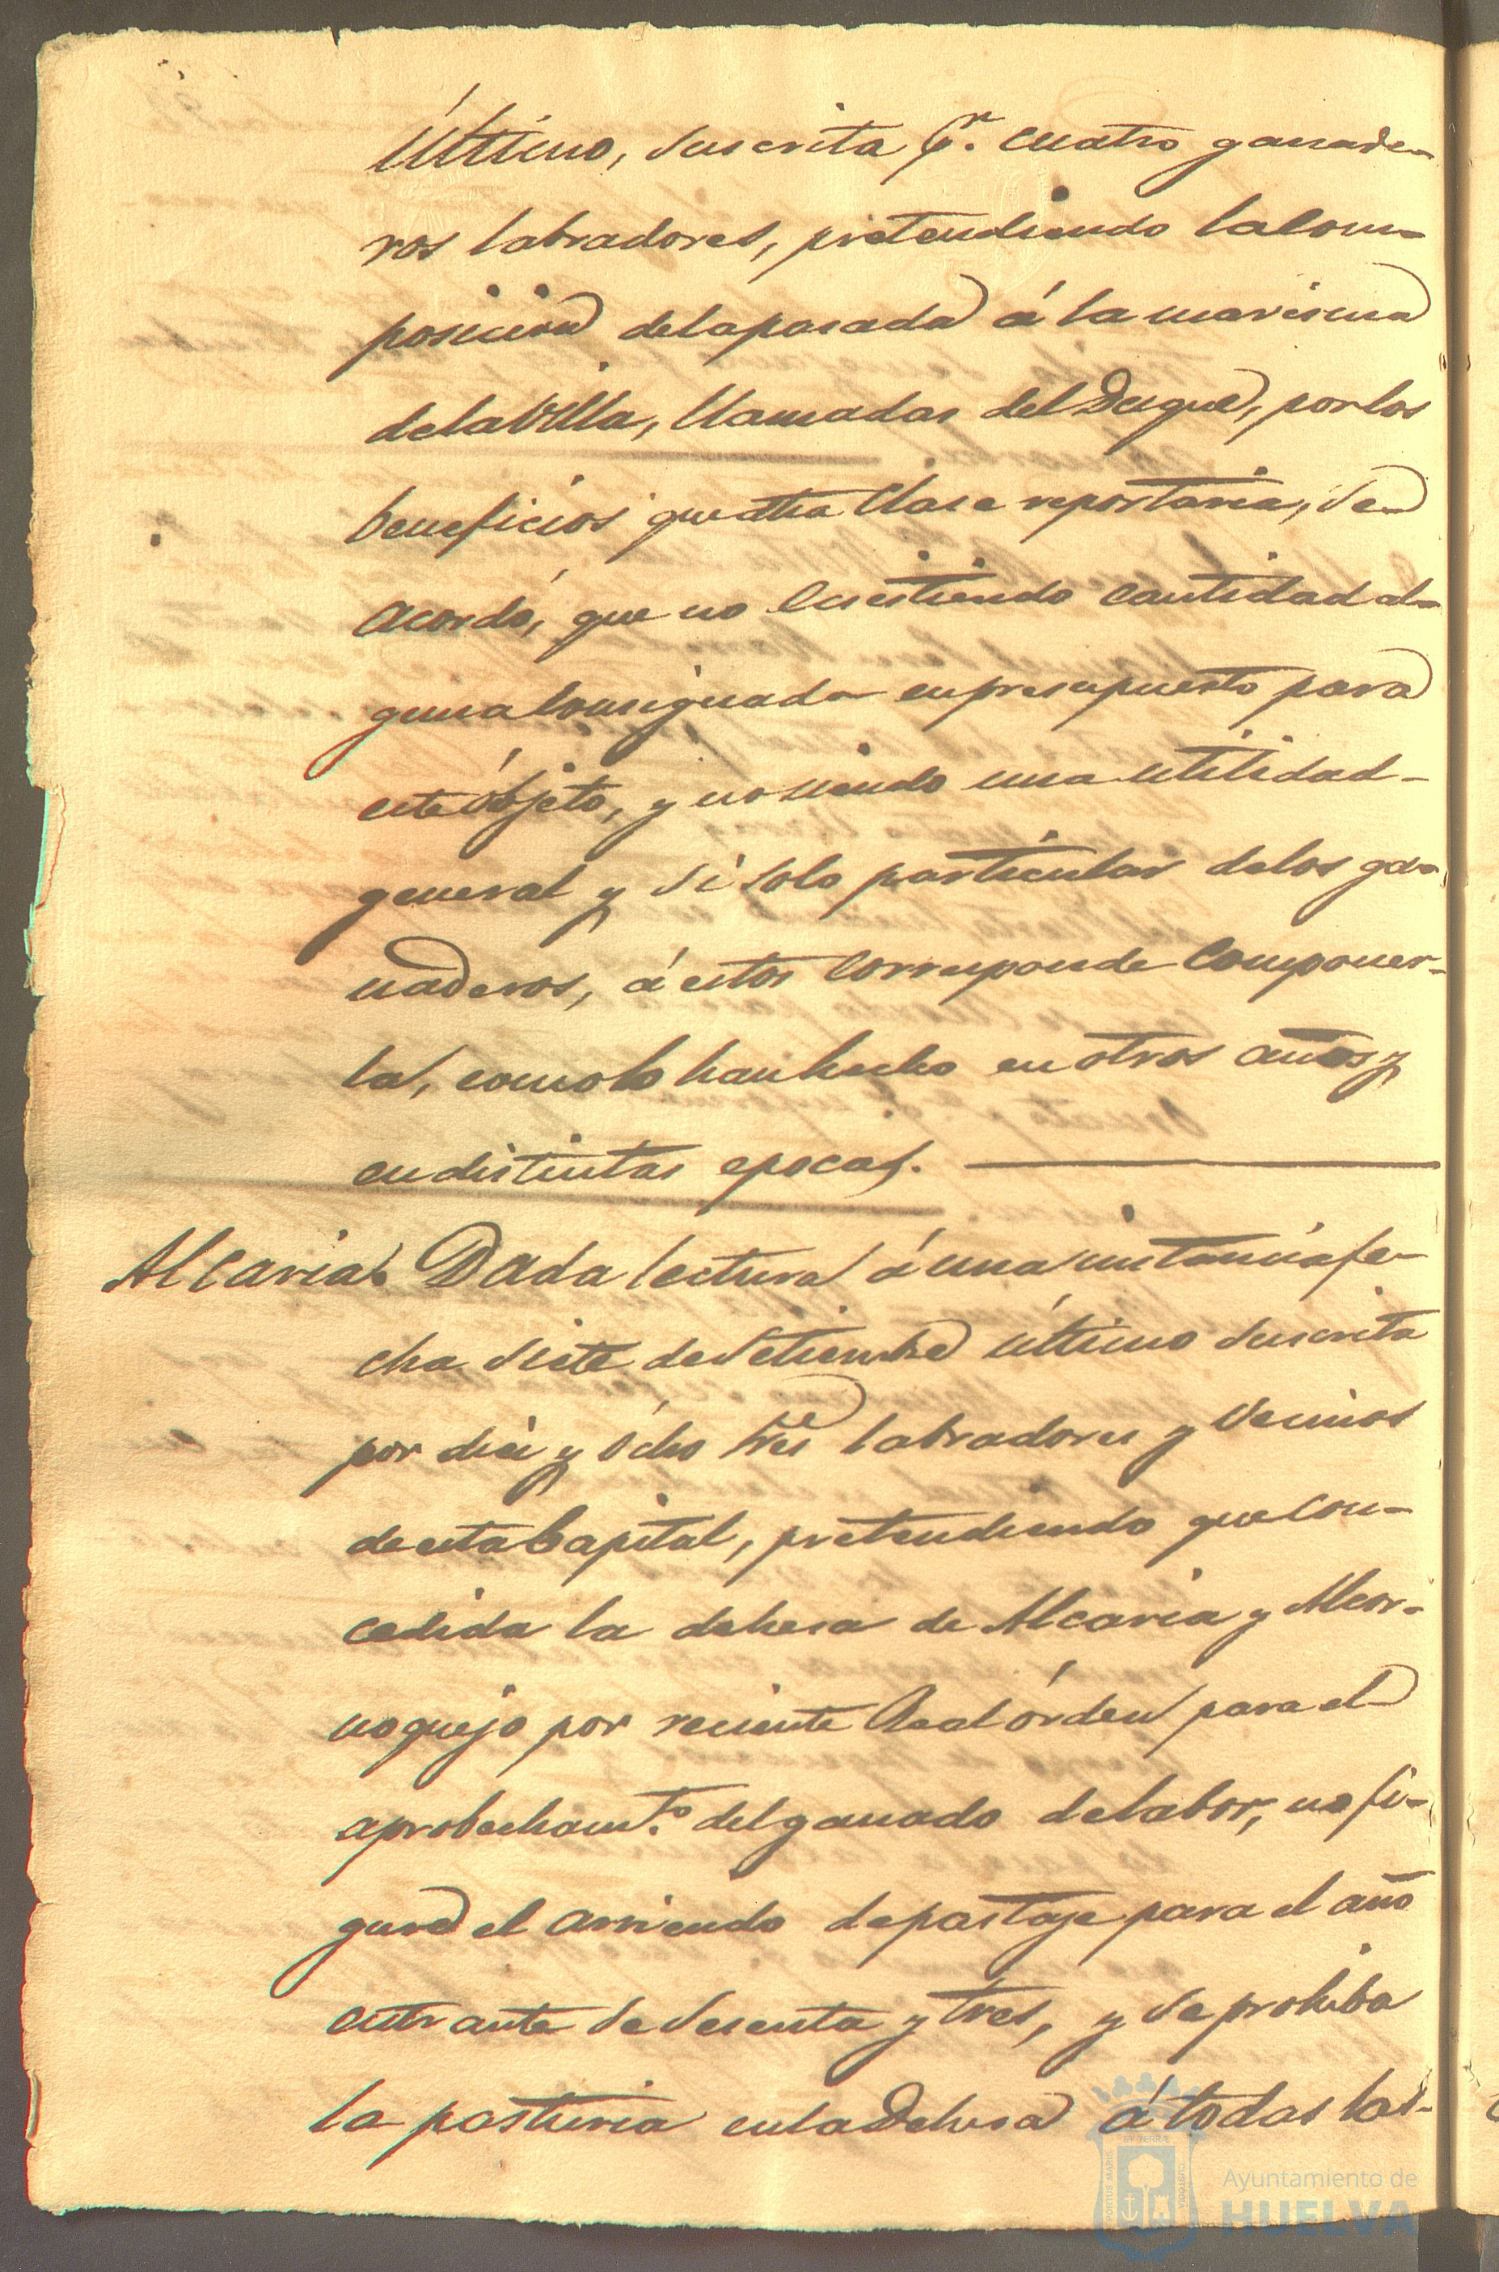 Último, suscrita p.r cuatro ganade-
ros labradores, pretendiendo la com-
posicion de la pasada á la marisma
de la Villa, llamadas del Duque, por los
beneficios que atha clase reportaria, se
acordó, que no ecsistiendo cantidad al-
guna consignada en presupuesto para
este óbjeto, y no siendo una utilidad
general y si solo particular de los ga-
naderos, á estos corresponde componer-
la, como lo han hecho en otros años y
en distintas epocas.
Alcaria. Dada lectura á una instancia fe-
cha siete de Setiembre último suscrita
por diei y ócho Sres labradores y vecinos
de esta Capital, pretendiendo que con-
cedida la dehesa de Alcaria y Alcor-
noquejo por reciente Real órden para el
aprobecham.to del ganado de labor, no fi-
gure el arriendo de pastage para el año
entrante de sesenta y tres, y se prohiba
la pasturia en la Dehesa á todas las
Ayuntamiento de
HUELVA